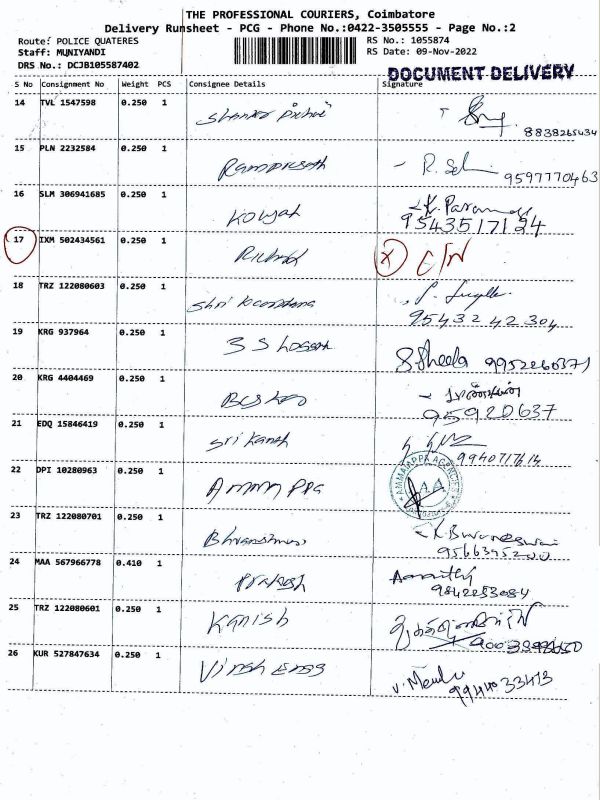 THE PROFESSIONAL COURIERS, Coimbatore
Delivery Runsheet - PCG - Phone No.:0422-3505555 - Page No.:2
Route: POLICE QUATERES RS No.: 1055874
Staff: MUNIYANDI RS Date: 09-Nov-2022
DRS No.: DCJB105587402
DOCUMENT DELIVERY
S No Consignment No Weight PCS Consignee Details Signature
14 TVL 1547598 0.250 1
8838265434
15 PLN 2232584 0.250 1
9597770463
16 SLM 306941685 0.250 1
9543517124
17 IXM 502434561 0.250 1 Richard X C/N
18 TRZ 122080603 0.250 1 Shri
95432 42304
19 KRG 937964 0.250 1
S Sheela 9952260371
20 KRG 4404469 0.250 1
95920637
21 EDQ 15846419 0.250 1 Sri Kanth
22 DPI 10280963 0.250 1 AMMAIAPPA AGENCIES A A
23 TRZ 122080701 0.250 1
K. Buvaneswari
24 MAA 567966778 0.410 1 Prakash
9842253084
25 TRZ 122080601 0.250 1 Kanish
26 KUR 527847634 0.250 1
99440 33413